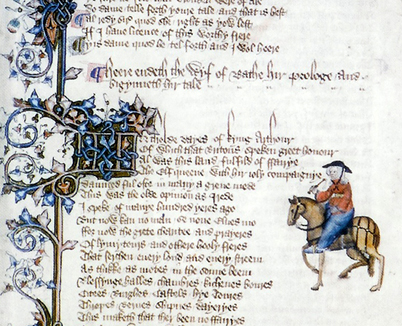 were of ale
Do dame telle forth youre tale and that is best
Al redy sire quod she right as yow lest
If I haue licence of this worthy frere
Yis dame quod he tel forth and I wol heere
Heere endeth the Wyf of Bathe hir prologe And
bigynneth hir tale
In tholde dayes of kyng Arthour
Of which that Britons speken greet honour
Al was this land fulfild of ffairye
The Elf queene with hir ioly compaignye
Daunced ful ofte in many a grene mede
This was the olde opinion as I rede
I speke of manye hundred yeres ago
But now kan no man se none elues mo
ffor now the grete charitee and prayeres
Of lymytours and othere hooly freres
That serchen euery lond and euery streem
As thikke as motes in the sonne beem
Blessynge halles chambres kichenes boures
Citees Burghes Castels hye Toures
Thropes Bernes shipnes dayeryes
This maketh that ther been no ffairyes